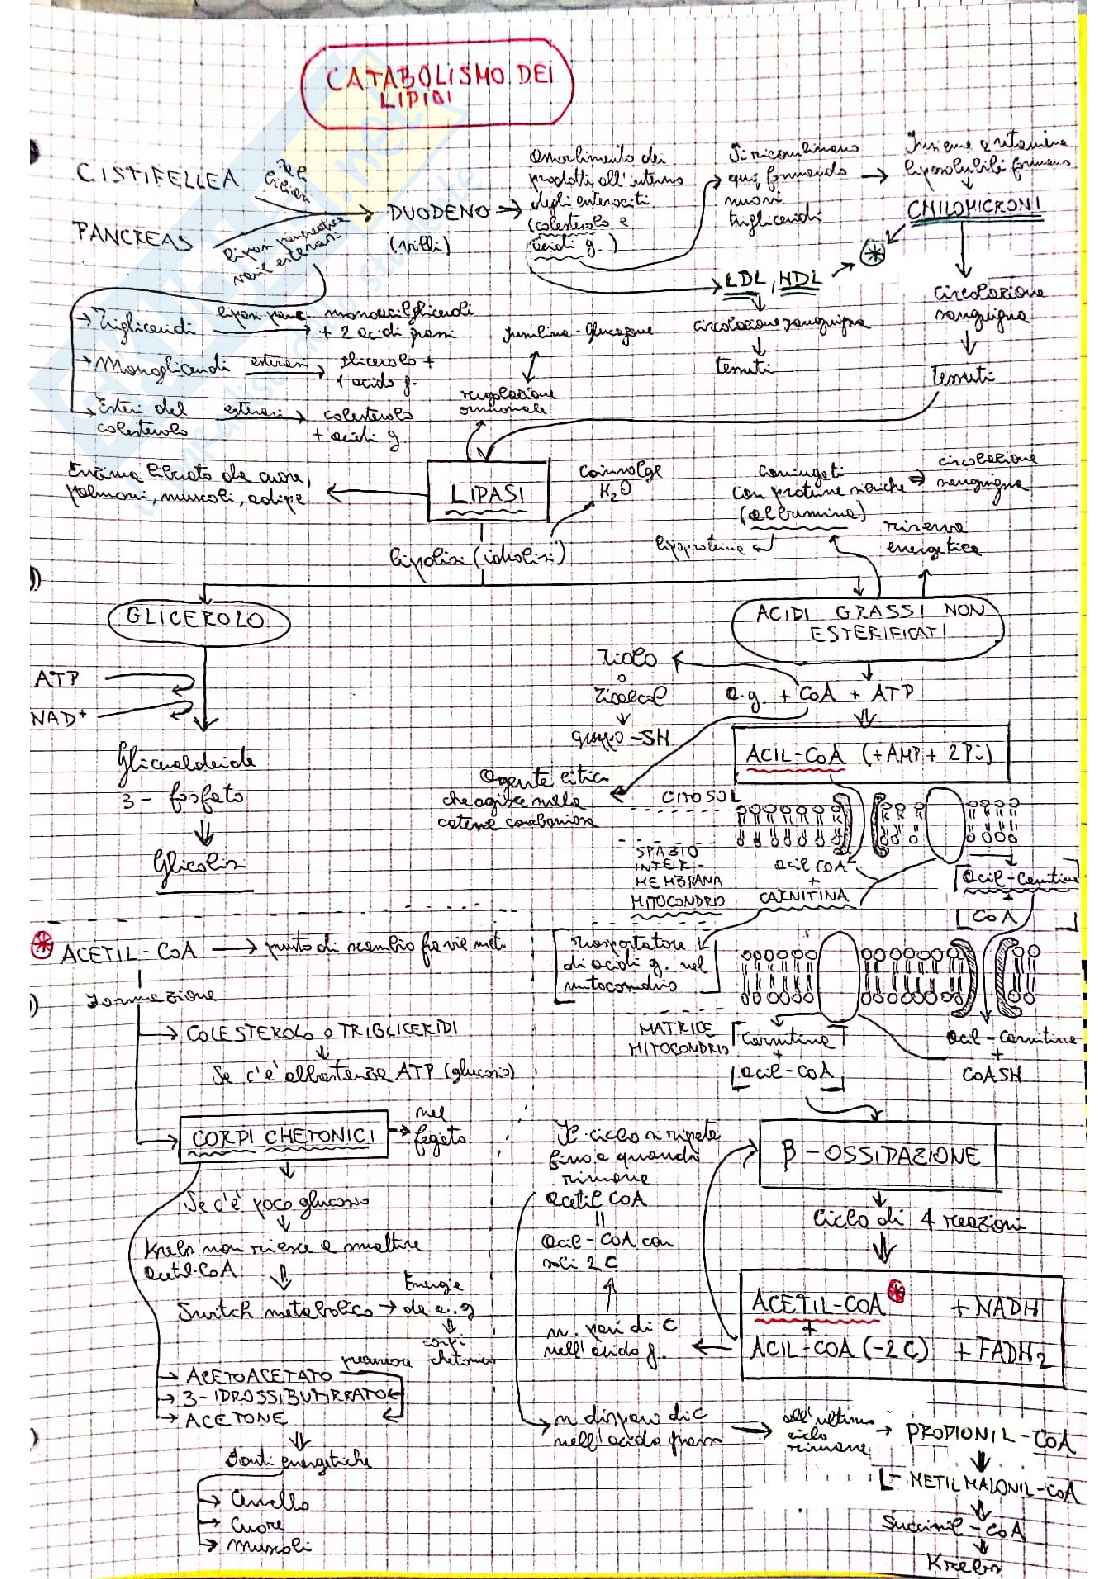 CATABOLISMO DEI
LIPIDI
CISTIFELLEA
Sali
biliari
PANCREAS
lipasi pancreatica
varie esterasi
DUODENO
(villi)
Assorbimento dei
prodotti all'interno
degli enterociti
(colesterolo e
acidi g.)
Si ricombinano
qui formando
nuovi
trigliceridi
Insieme a vitamine
liposolubili formano
CHILOMICRONI
LDL, HDL
circolazione sanguigna
tessuti
circolazione
sanguigna
Tessuti
Trigliceridi
lipasi panc.
monoacilgliceroli
+ 2 acidi grassi
Monogliceridi
esterasi
glicerolo +
1 acido g.
Esteri del
colesterolo
esterasi
colesterolo
+ acidi g.
Insulina-Glucagone
regolazione
ormonale
Enzima liberato da cuore,
polmoni, muscoli, adipe
LIPASI
coinvolge
H2O
lipolisi (idrolisi)
Coniugati
con proteine sieriche
(albumina)
lipoproteina
circolazione
sanguigna
riserva
energetica
GLICEROLO
ACIDI GRASSI NON
ESTERIFICATI
ATP
NAD+
Gliceraldeide
3-fosfato
Glicolisi
Tiolo
o
Tioalcol
gruppo -SH
a.g + CoA + ATP
ACIL-CoA (+AMP+ 2Pi)
Agente litico
che agisce nella
catena carboniosa
CITOSOL
SPAZIO
INTER-
MEMBRANA
MITOCONDRIO
acil CoA
+
CARNITINA
acil-carnitina
+
CoA
trasportatore
di acidi g. nel
mitocondrio
MATRICE
MITOCONDRIO
Carnitina
+
acil-CoA
acil-carnitina
+
CoASH
ACETIL-CoA
punto di scambio fra vie meta
Formazione
COLESTEROLO o TRIGLICERIDI
Se c'è abbastanza ATP (glucosio)
CORPI CHETONICI
nel
fegato
Se c'è poco glucosio
Krebs non riesce a smaltire
acetil-CoA
Switch metabolico
Energia
da a.g
corpi
chetonici
ACETOACETATO
3-IDROSSIBUTIRRATO
ACETONE
Fonti energetiche
Cervello
Cuore
Muscoli
Il ciclo si ripete
fino a quando
rimane
acetil CoA
=
acil-CoA con
soli 2 C
n. pari di C
nell'acido g.
β-OSSIDAZIONE
Ciclo di 4 reazioni
ACETIL-COA + NADH
+
ACIL-COA (-2C) + FADH2
n. dispari di C
nell'acido grasso
all'ultimo
ciclo
rimane
PROPIONIL-COA
L-METILMALONIL-COA
Succinil-CoA
Krebs